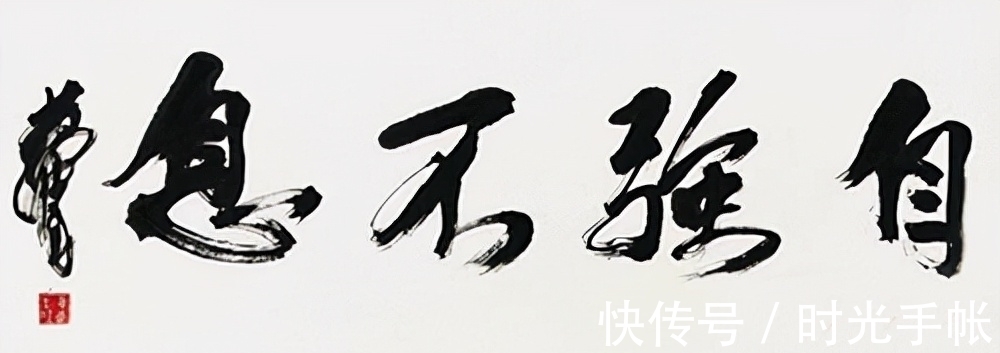 自强不息
快传号 / 时光手帐